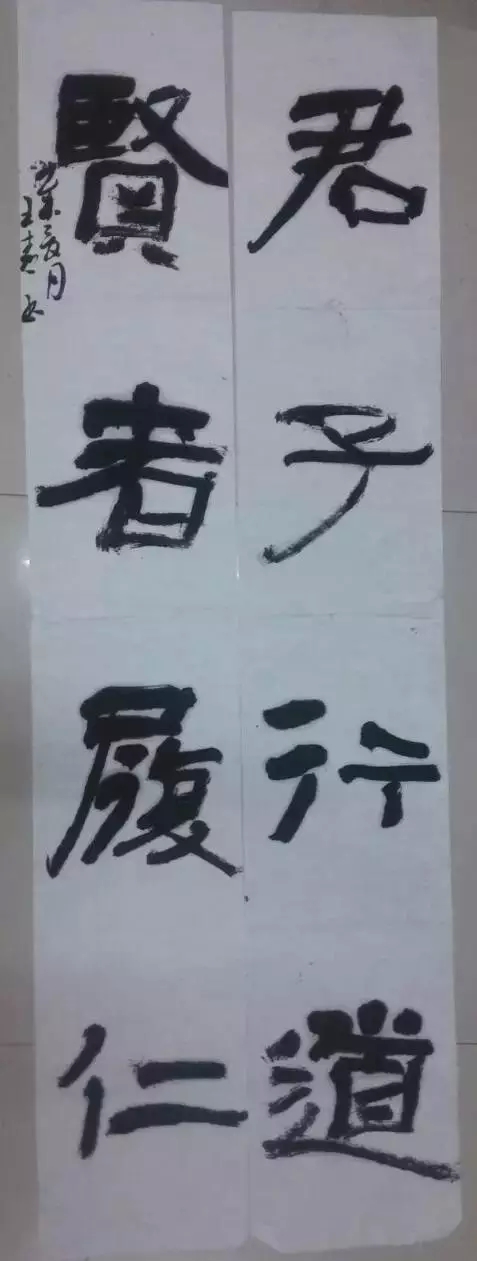 君子行道
賢者履仁